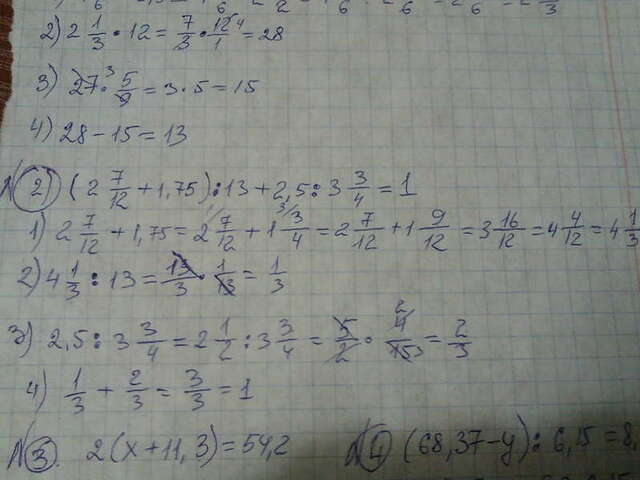 2) 2 1/3 · 12 = 7/3 · 12/1 4 = 28
3) 27 3 : 9/5 = 3 · 5 = 15
4) 28 - 15 = 13
N 2) (2 7/12 + 1,75) : 13 + 2,5 : 3 3/4 = 1
1) 2 7/12 + 1,75 = 2 7/12 + 1 3/4 3 = 2 7/12 + 1 9/12 = 3 16/12 = 4 4/12 = 4 1/3
2) 4 1/3 : 13 = 13/3 · 1/13 = 1/3
3) 2,5 : 3 3/4 = 2 1/2 : 3 3/4 = 5/2 · 4 2/15 3 = 2/3
4) 1/3 + 2/3 = 3/3 = 1
N 3) 2(x + 11,3) = 54,2 N 4) (68,37 - y) : 6,15 = 8,